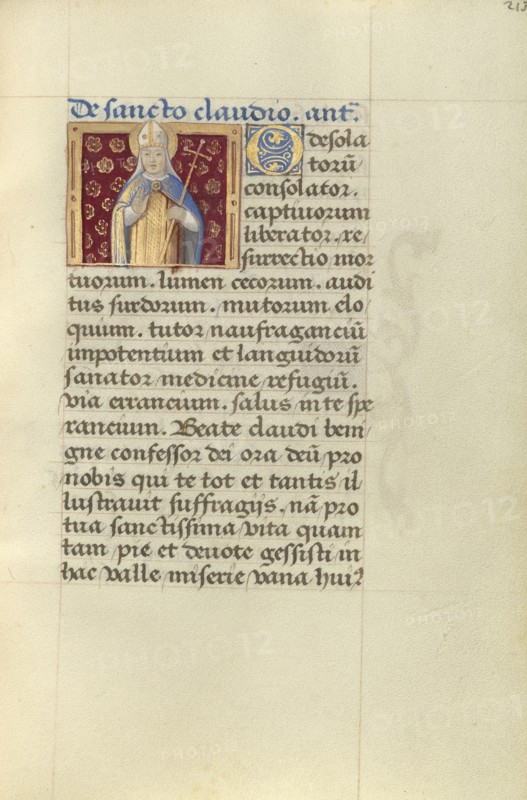 213
De sancto claudio. ant̄.
O desola
torū
consolator.
captiuorum
liberator. re/
surrectio mor
tuorum. lumen cecorum. audi
tus surdorum. mutorum elo/
quium. tutor naufraganciū
impotentium et languidorū
sanator medicine refugiū.
via errancium. salus in te spe
rancium. Beate claudi beni/
gne confessor dei ora deū pro
nobis qui te tot et tantis il
lustrauit suffragijs. nā pro
tua sanctissima vita quam
tam pie et deuote gessisti in
hac valle miserie vana hui⁹